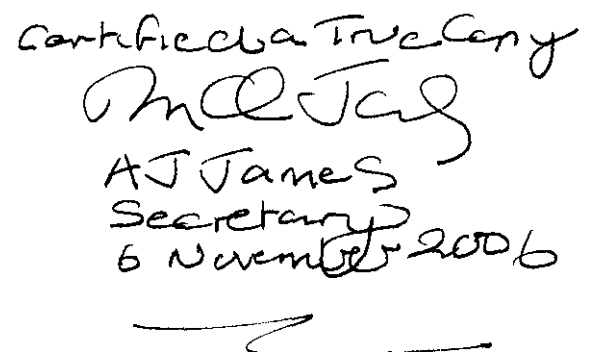 Certified a True Copy
A J James
Secretary
6 November 2006